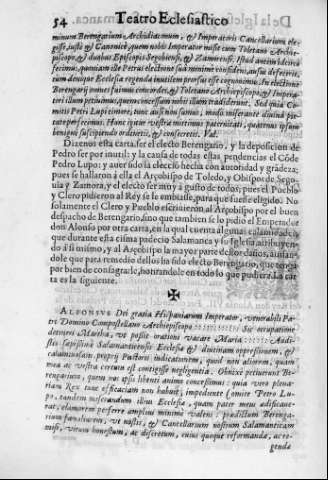 54 Teatro Eclesiastico
minum Berengarium Archidiaconum, & Imperatoris Cancellarium ele-
gisse, iustè & Canonicè, quem nobis Imperator misit cum Toletano Archie-
piscopo, & duobus Episcopis Segobiense, & Zamorense. Ipsud autem idcircò
fecimus, quoniam iste Petrus electione sua minimè confidens, ab ea desecerit,
eum denique Ecclesia regenda inutilem prorsus esse cognouimus. In electione
Berengarij omnes fuimus concordes, & Toletano Archiepiscopo, & Impera-
tori illum petiuimus, quem concessam nobis illum tradiderunt. Sed quia Co-
mitis Petri Lupi timore, tunc absens fuimus, modo miserante diuina pie-
tate perfecimus. Hunc igitur vestra mittimus paternitati, quatenus ipsum
benignè suscipiendo ordinetis, & consecretis. Val.
Dizenos esta carta, ser el electo Berengario, y la deposicion de
Pedro ser por inutil: y la causa de todas estas pendencias el Cõde
Pedro Lupo: y auer sido la eleccio hecha con autoridad y grãdeza;
pues se hallaron à ella el Arçobispo de Toledo, y Obispos de Sego-
uia y Zamora, y el electo ser muy à gusto de todos; pues el Pueblo
y Clero pidieron al Rey se lo embiasse, para que fuesse elegido. No
solamente el Clero y Pueblo escriuieron al Arçobispo por el buen
despacho de Berengario, sino que tambien se lo pidiò el Emperador
don Alonso por otra carta, en la qual cuenta algunas calamidades
que durante esta cisma padeciò Salamanca y su Iglesia, atribuyen-
do à si mismo, y al Arçobispo la mayor parte dellos daños, auisan-
dole que para remedio dellos ha sido electo Berengario, que tenga
por bien de consagrarle, honrandole en todo lo que pudiere. La car-
ta es la siguiente.
ALFONSVS Dei gratia Hispaniarum Imperator, venerabili Pa-
tri Domino Compostellano Archiepiscopo :::::::::: Sic occupatione
detineri Martha, vt possit oratione vacare Maria ::::::: Audi-
stis sapissimè Salamantinensis Ecclesia & diuitiarum oppressionem, &
calamitatem propriq Pastoris indicationem, quod non aliorum, quam
mea ac vestra certum est contigisse negligentia. Obnixè petiuerunt Be-
rengarium, quem nos ipsis libenti animo concessimus: quia verò plena-
riam Rex tunc efficaciam non habuit, impediente Comite Petro Lu-
po, tandem miserandum illius Ecclesia, quam pater meus adificaue-
rat, clamorem perferre amplius minimè valens, pradictum Berenga-
rium familiarem, vt nostis, & Cancellarium nostrum Salamanticam
misi, virum honestum, ac discretum, cuius quoque reformanda, ac re-
genda